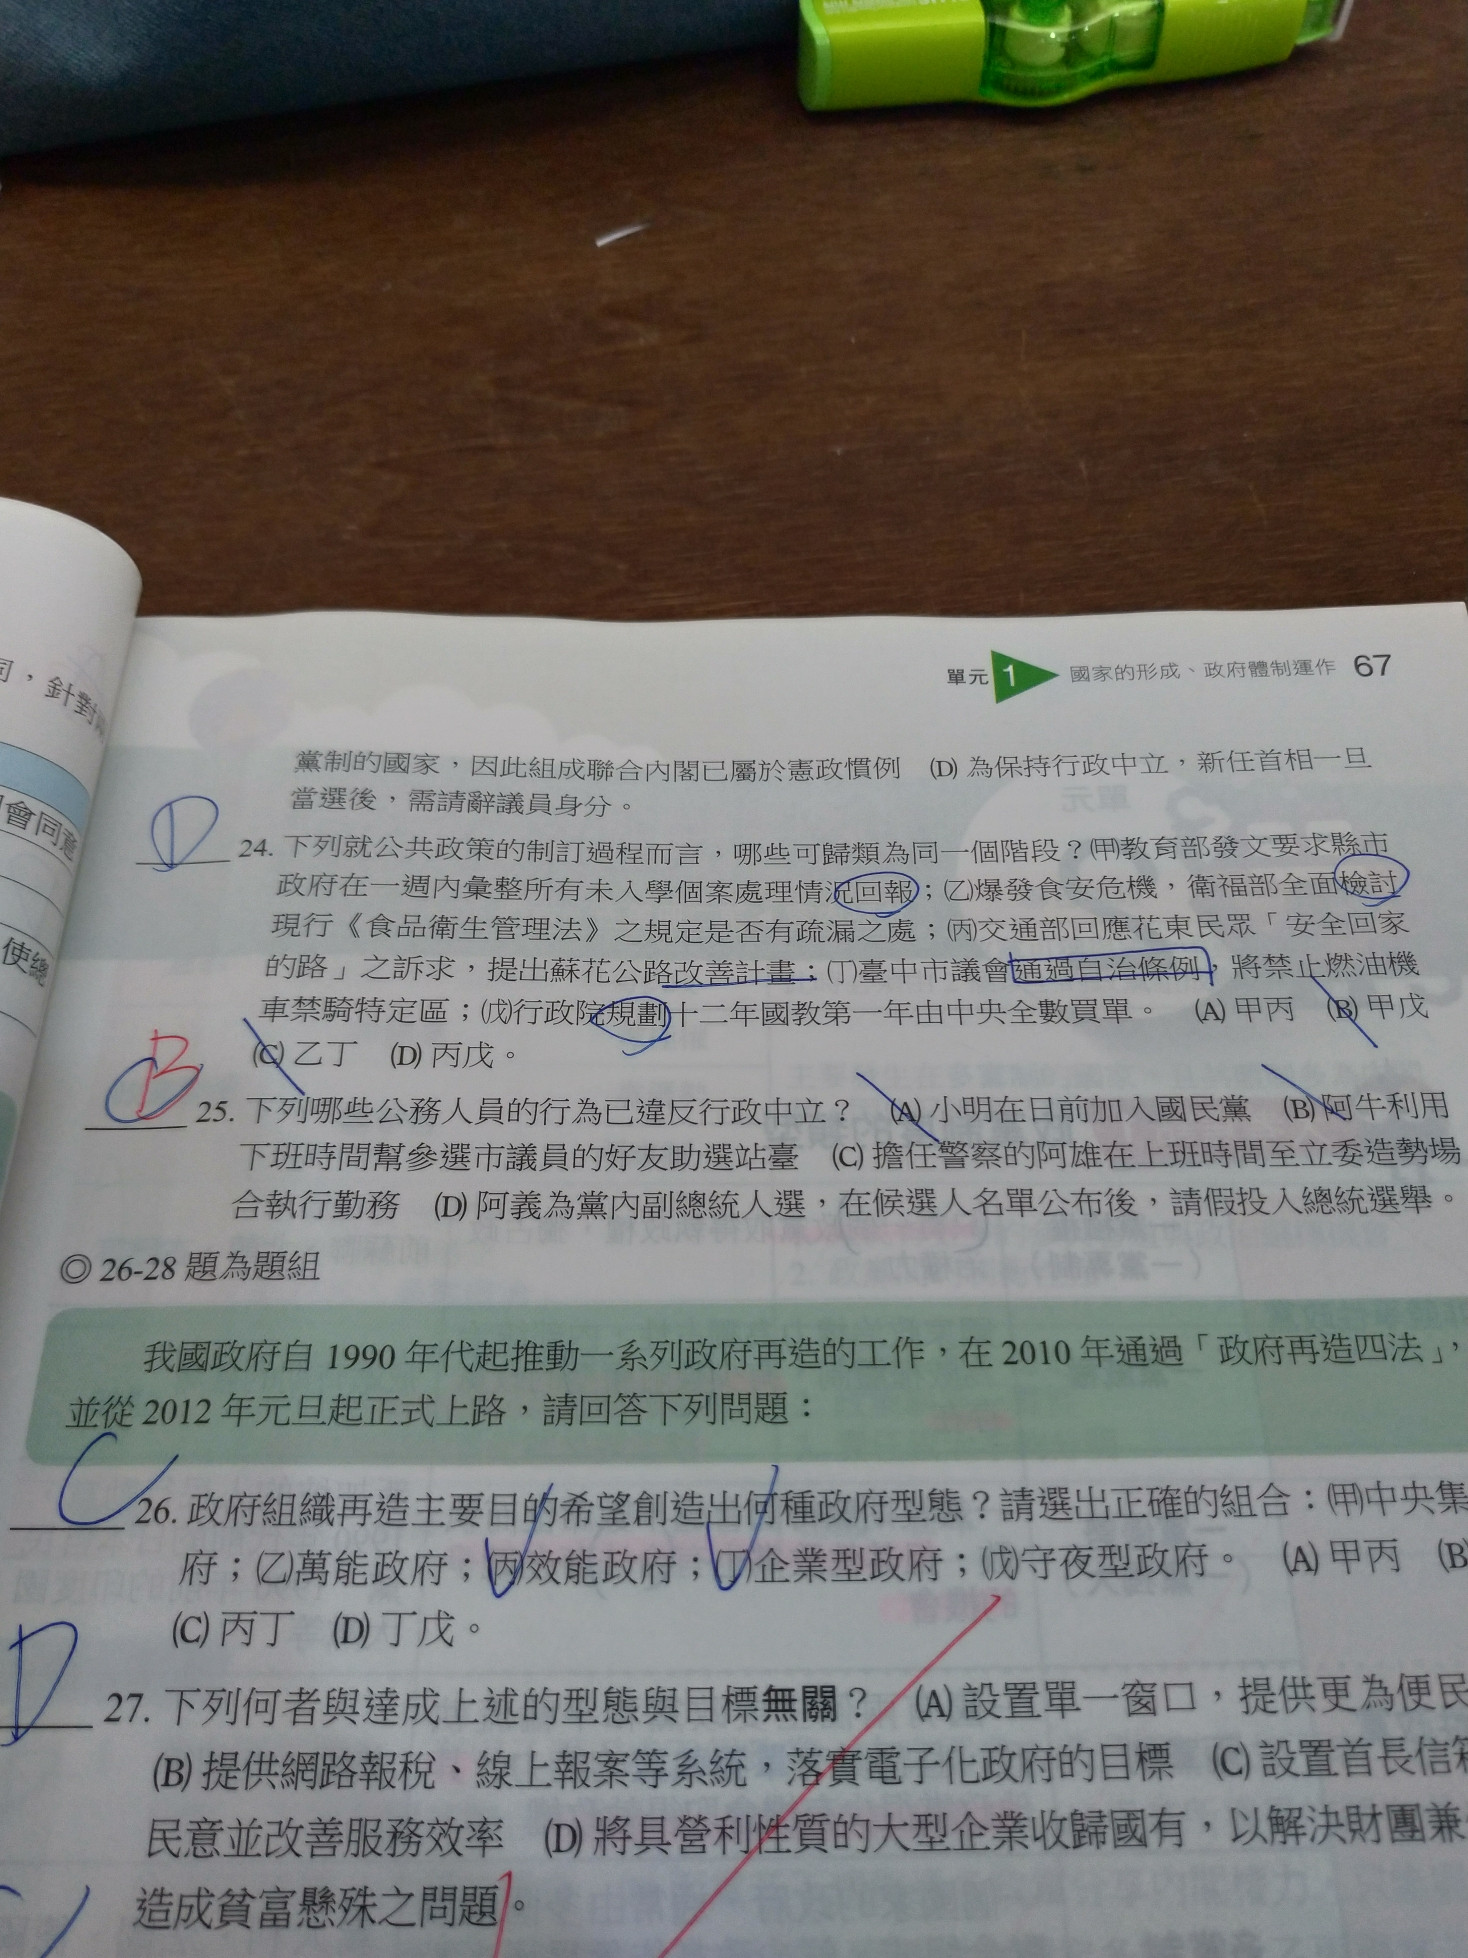 單元 1 國家的形成、政府體制運作 67
黨制的國家，因此組成聯合內閣已屬於憲政慣例 (D) 為保持行政中立，新任首相一旦
當選後，需請辭議員身分。
D 24. 下列就公共政策的制訂過程而言，哪些可歸類為同一個階段？(甲)教育部發文要求縣市
政府在一週內彙整所有未入學個案處理情況回報；(乙)爆發食安危機，衛福部全面檢討
現行《食品衛生管理法》之規定是否有疏漏之處；(丙)交通部回應花東民眾「安全回家
的路」之訴求，提出蘇花公路改善計畫；(丁)臺中市議會通過自治條例，將禁止燃油機
車禁騎特定區；(戊)行政院規劃十二年國教第一年由中央全數買單。 (A) 甲丙 (B) 甲戊
(C) 乙丁 (D) 丙戊。
B 25. 下列哪些公務人員的行為已違反行政中立？ (A) 小明在日前加入國民黨 (B) 阿牛利用
下班時間幫參選市議員的好友助選站臺 (C) 擔任警察的阿雄在上班時間至立委造勢場
合執行勤務 (D) 阿義為黨內副總統人選，在候選人名單公布後，請假投入總統選舉。
◎ 26-28 題為題組
我國政府自 1990 年代起推動一系列政府再造的工作，在 2010 年通過「政府再造四法」，
並從 2012 年元旦起正式上路，請回答下列問題：
C 26. 政府組織再造主要目的希望創造出何種政府型態？請選出正確的組合：(甲)中央集
府；(乙)萬能政府；(丙)效能政府；(丁)企業型政府；(戊)守夜型政府。 (A) 甲丙 (B
(C) 丙丁 (D) 丁戊。
D 27. 下列何者與達成上述的型態與目標無關？ (A) 設置單一窗口，提供更為便民
(B) 提供網路報稅、線上報案等系統，落實電子化政府的目標 (C) 設置首長信箱
民意並改善服務效率 (D) 將具營利性質的大型企業收歸國有，以解決財團兼
造成貧富懸殊之問題。
同，針對
會同意
使總